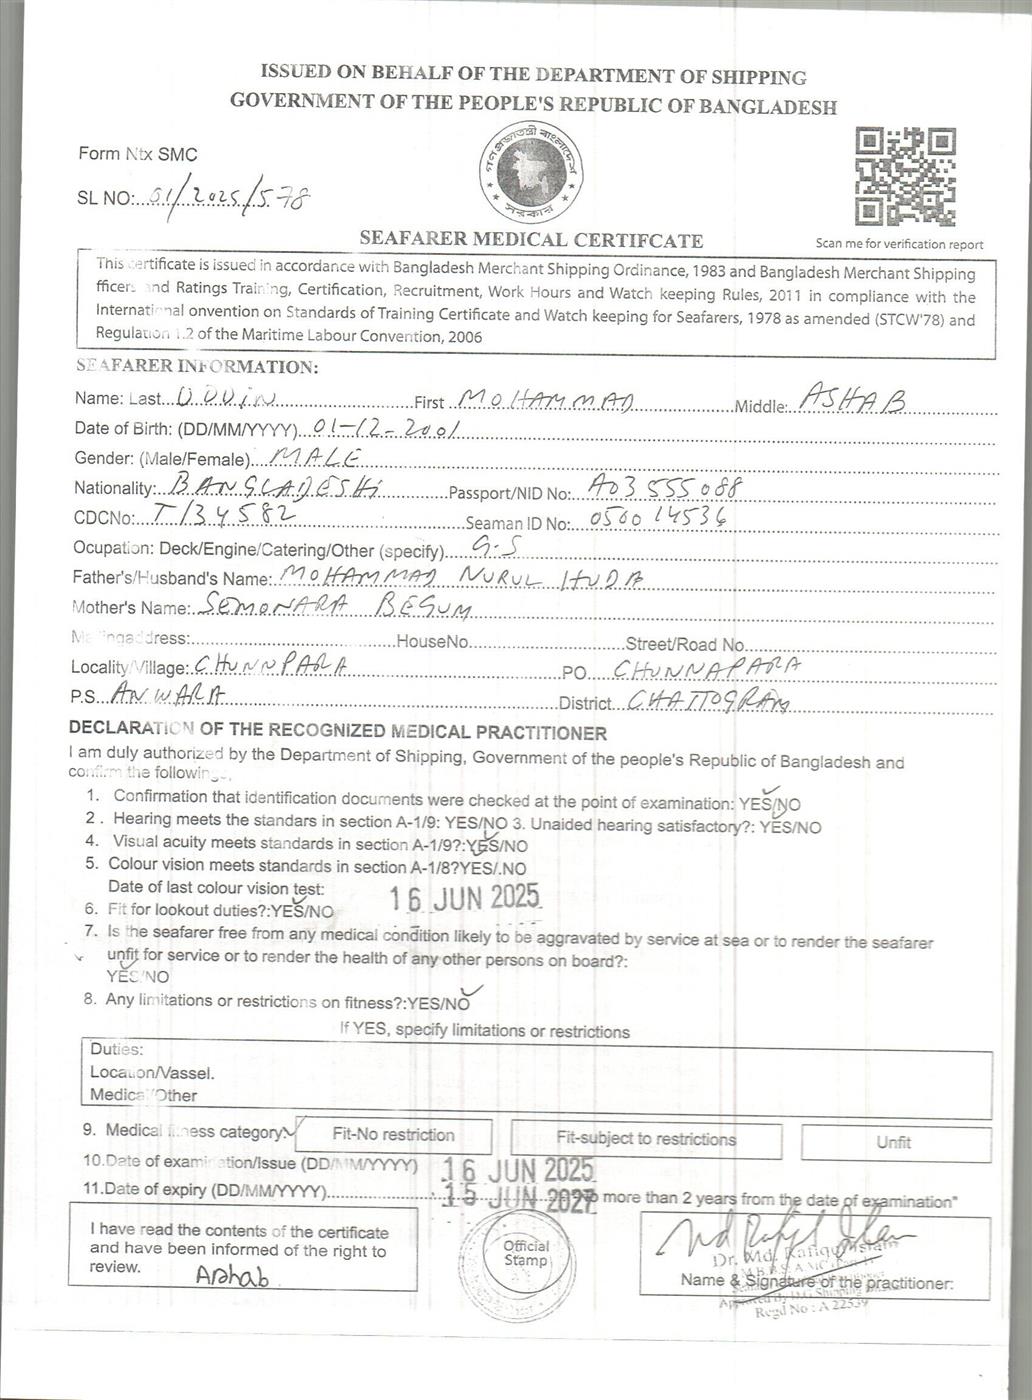 ISSUED ON BEHALF OF THE DEPARTMENT OF SHIPPING
GOVERNMENT OF THE PEOPLE'S REPUBLIC OF BANGLADESH
গণপ্রজাতন্ত্রী বাংলাদেশ
সরকার
Form Ntx SMC
SL NO:...01/2025/578
Scan me for verification report
SEAFARER MEDICAL CERTIFCATE
This certificate is issued in accordance with Bangladesh Merchant Shipping Ordinance, 1983 and Bangladesh Merchant Shipping
fficers and Ratings Training, Certification, Recruitment, Work Hours and Watch keeping Rules, 2011 in compliance with the
International onvention on Standards of Training Certificate and Watch keeping for Seafarers, 1978 as amended (STCW'78) and
Regulation 1.2 of the Maritime Labour Convention, 2006
SEAFARER INFORMATION:
Name: Last...UDDIN...First...MOHAMMAD...Middle:..ASHAB
Date of Birth: (DD/MM/YYYY)..01-12-2001
Gender: (Male/Female)...MALE
Nationality:..BANGLADESHI...Passport/NID No:...A03555088
CDCNo:..T/34582...Seaman ID No:...050014536
Ocupation: Deck/Engine/Catering/Other (specify)...G.S
Father's/Husband's Name:..MOHAMMAD NURUL HUDA
Mother's Name:..SEMONARA BEGUM
Mailingaddress:...HouseNo...Street/Road No...
Locality/Village:..CHUNNPARA...PO...CHUNNAPARA
P.S..ANWARA...District...CHATTOGRAM
DECLARATION OF THE RECOGNIZED MEDICAL PRACTITIONER
I am duly authorized by the Department of Shipping, Government of the people's Republic of Bangladesh and
confirm the following:
1. Confirmation that identification documents were checked at the point of examination: YES/NO
2 . Hearing meets the standars in section A-1/9: YES/NO 3. Unaided hearing satisfactory?: YES/NO
4. Visual acuity meets standards in section A-1/9?:YES/NO
5. Colour vision meets standards in section A-1/8?YES/.NO
Date of last colour vision test: 16 JUN 2025
6. Fit for lookout duties?:YES/NO
7. Is the seafarer free from any medical condition likely to be aggravated by service at sea or to render the seafarer
unfit for service or to render the health of any other persons on board?:
YES/NO
8. Any limitations or restrictions on fitness?:YES/NO
If YES, specify limitations or restrictions
Duties:
Location/Vassel.
Medical/Other
9. Medical fitness category: Fit-No restriction Fit-subject to restrictions Unfit
10.Date of examination/Issue (DD/MM/YYYY) 16 JUN 2025
11.Date of expiry (DD/MM/YYYY)... 15 JUN 2027 more than 2 years from the date of examination"
I have read the contents of the certificate
and have been informed of the right to
review.
Ashab
Official
Stamp
Md Rafiqul Islam
Dr. Md. Rafiqul Islam
Name & Signature of the practitioner:
Regd No : A 22539